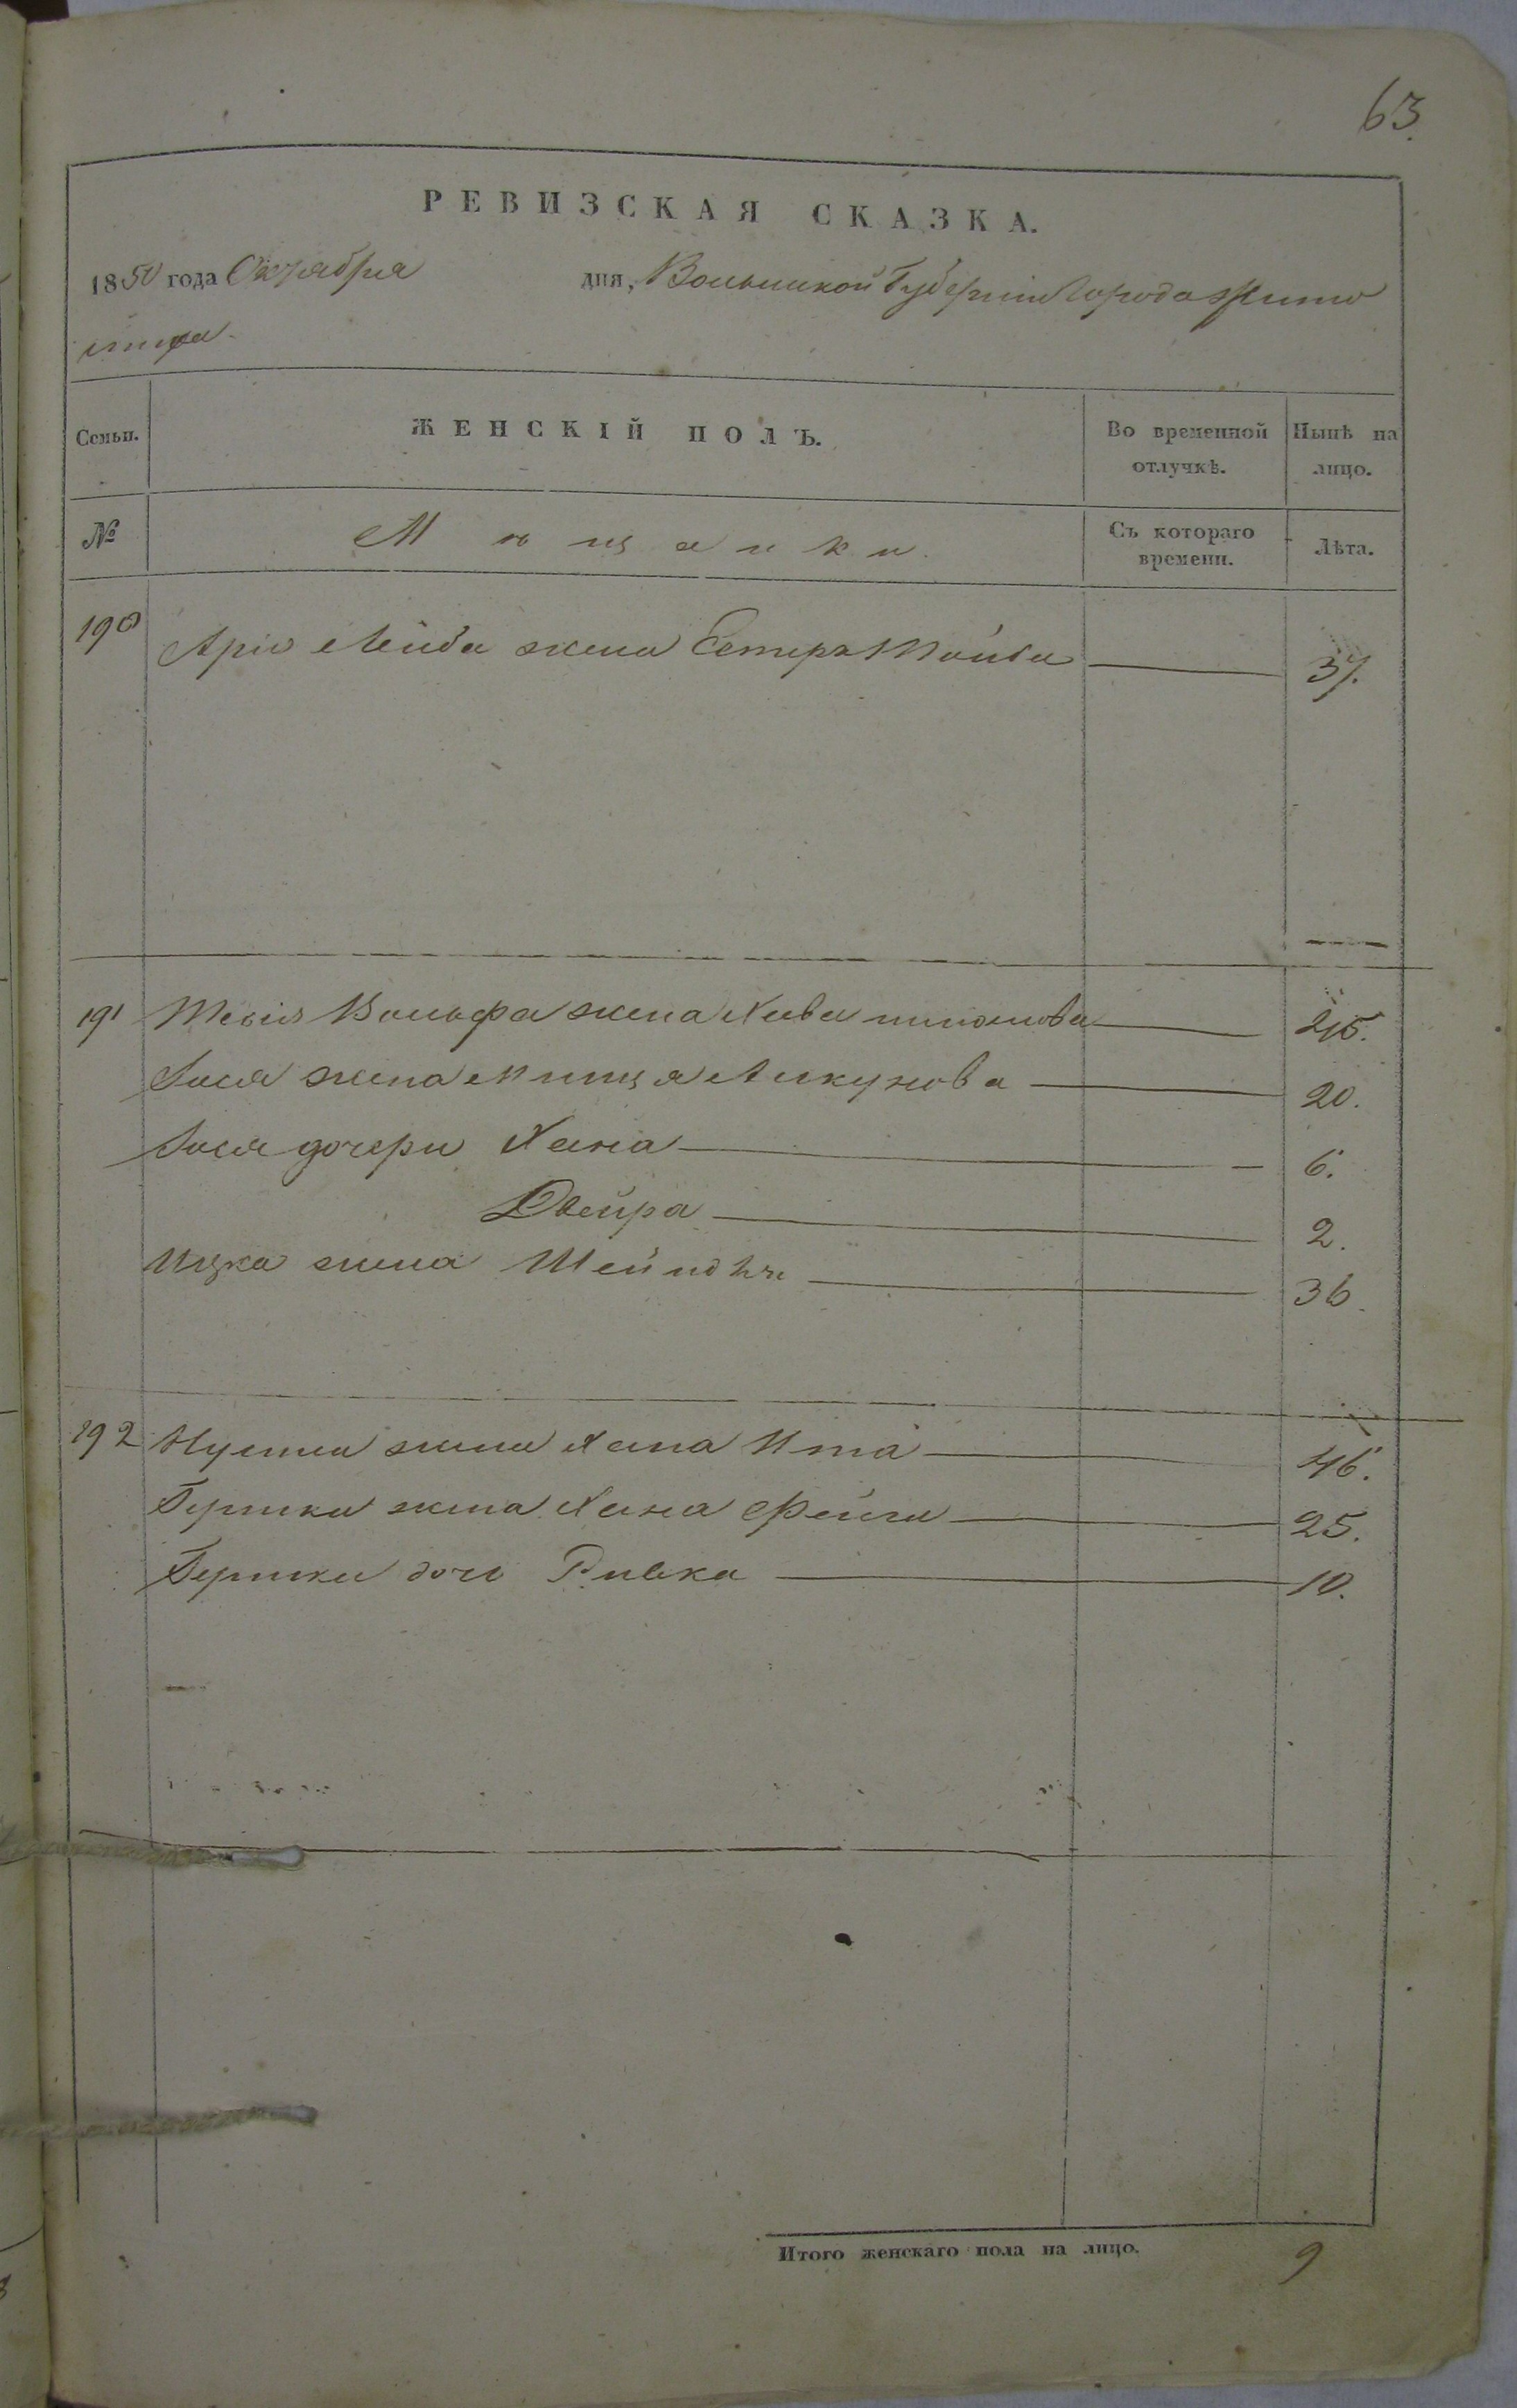 63.
РЕВИЗСКАЯ СКАЗКА.
1850 года Октября дня, Волынской Губерніи Города Жито
мира.
Семьи. ЖЕНСКІЙ ПОЛЪ. Во временной отлучкѣ. Нынѣ на лицо.
№ Мѣщанки. Съ котораго времени. Лѣта.
190 Аріо Лейба жена Естера 37.
191 Жена Хава 45.
жена 20.
дочери Хана 6.
Двейра 2.
Ицка жена Шейндля 36.
192 жена Хана Ита 46.
Гершки жена Хана Фейга 25.
Гершки дочь Ривка 10.
Итого женскаго пола на лицо. 9